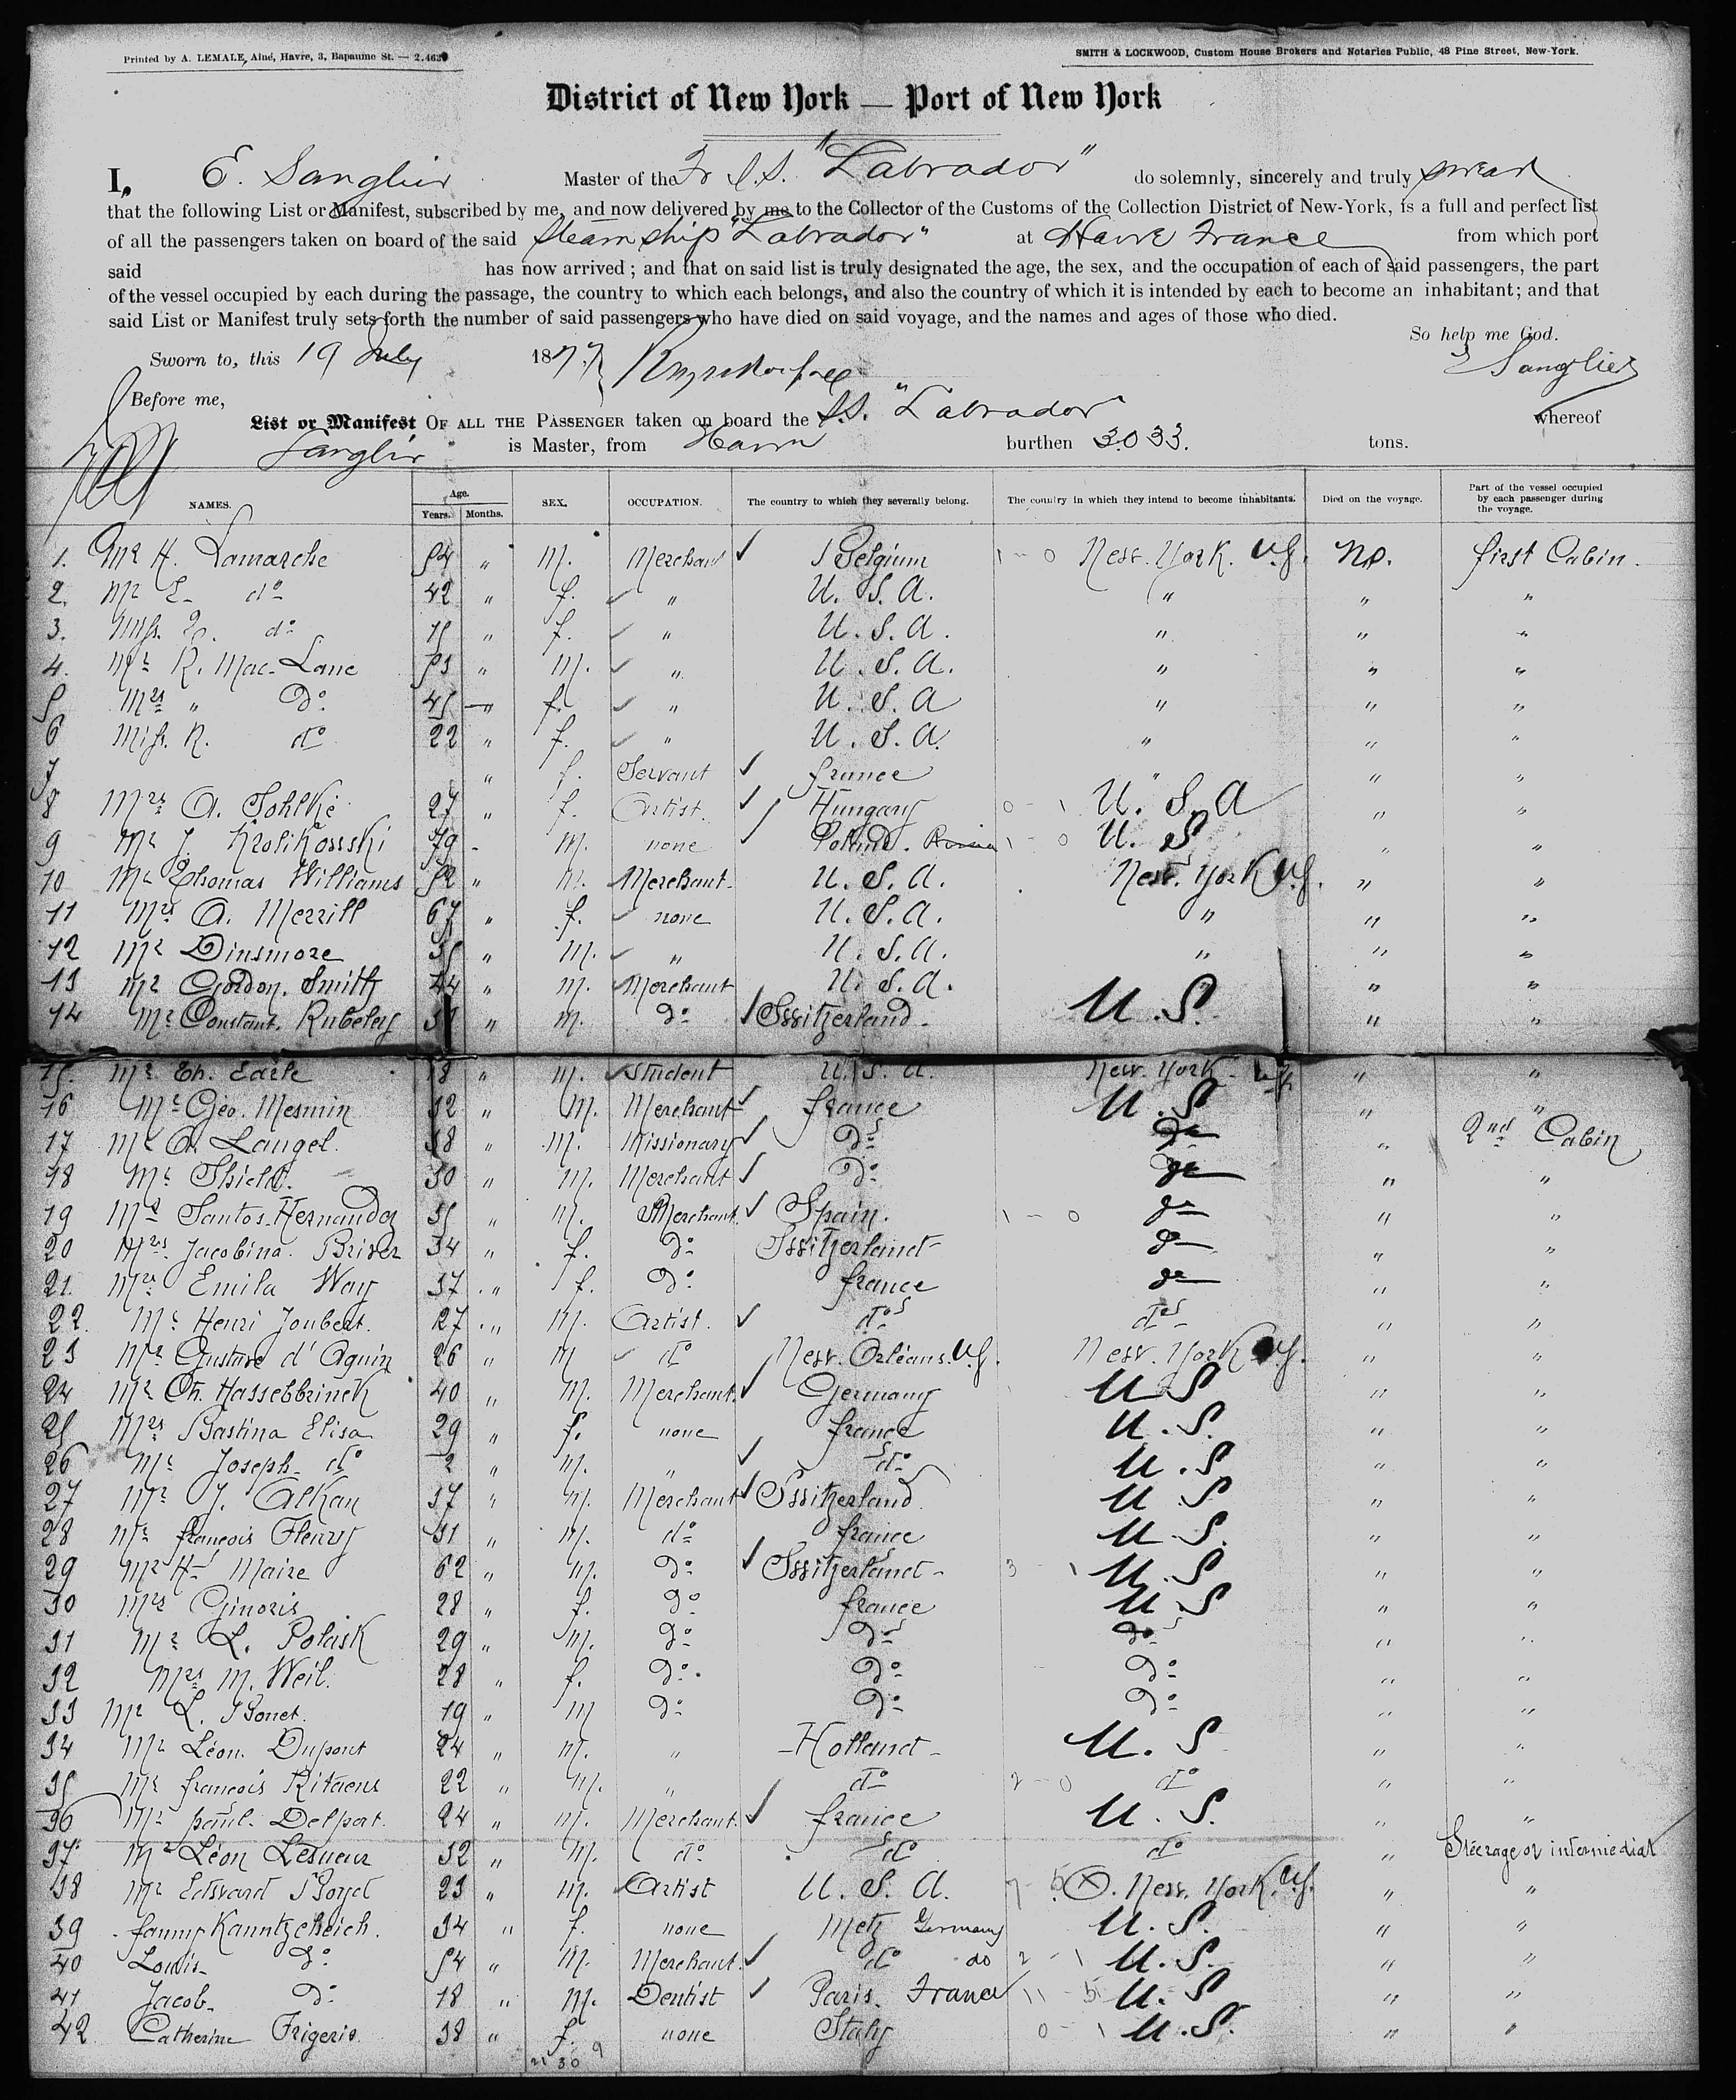 Printed by A. LEMALE, Ainé, Havre, 3, Bapaume St. — 2.4639
SMITH & LOCKWOOD, Custom House Brokers and Notaries Public, 48 Pine Street, New-York.
District of New York — Port of New York
I, E. Sanglier Master of the Fr S.S. "Labrador" do solemnly, sincerely and truly swear
that the following List or Manifest, subscribed by me, and now delivered by me to the Collector of the Customs of the Collection District of New-York, is a full and perfect list
of all the passengers taken on board of the said Steam ship "Labrador" at Havre France from which port
said has now arrived; and that on said list is truly designated the age, the sex, and the occupation of each of said passengers, the part
of the vessel occupied by each during the passage, the country to which each belongs, and also the country of which it is intended by each to become an inhabitant; and that
said List or Manifest truly sets forth the number of said passengers who have died on said voyage, and the names and ages of those who died.
So help me God.
Sworn to, this 19 July 1877
E Sanglier
Before me,
List or Manifest OF ALL THE PASSENGER taken on board the S.S. "Labrador" whereof
Sanglier is Master, from Havre burthen 3033. tons.
NAMES. Age. Years. Months. SEX. OCCUPATION. The country to which they severally belong. The country in which they intend to become inhabitants. Died on the voyage. Part of the vessel occupied by each passenger during the voyage.
1. Mr H. Lamarche 54 " M. Merchant ✓ Belgium 1 - 0 New. York. U.S. No. first Cabin.
2. Mr E. do 42 " f. ✓ " U. S. A. " " "
3. Miss. do 15 " f. ✓ " U. S. A. " " "
4. Mr R. Mac-Lane 53 " M. ✓ " U. S. A. " " "
5 Mrs " Do 45 " f. ✓ " U. S. A " " "
6 Miss. R. do 22 " f. ✓ " U. S. A. " " "
7 " f. Servant ✓ france " " "
8 Mrs A. Sohlke 27 " f. Artist. ✓ Hungary 0 - 1 U. S. A " "
9 Mr J. Krolikowski 79 - M. none ✓ Poland. Russia 1 - 0 U. S " "
10 Mr Thomas Williams 52 " M. ✓ Merchant. U. S. A. New. York U.S. " "
11 Mrs A. Merrill 67 " f. ✓ none U. S. A. " " "
12 Mr Dinsmore 35 " M. ✓ " U. S. A. " " "
13 Mr Gordon. Smith 44 " M. ✓ Merchant U. S. A. " "
14 Mr Constant. Rubeley " M. do ✓ Switzerland. U. S. " "
15. Mr Ch. Earle 18 " M. ✓ Student U. S. A. New. York " "
16 Mr Geo. Mesmin 32 " M. Merchant ✓ france U. S " "
17 Mr A. Langel. 38 " M. Missionary ✓ do do " 2nd Cabin
18 Mr Shield. 30 " M. Merchant ✓ do do " "
19 Mr Santos-Hernandez 35 " M. Merchant. ✓ Spain. 1 - 0 do " "
20 Mrs. Jacobina. Briser 34 " f. do Switzerland do " "
21. Mrs Emila Way 37 " f. do france do " "
22. Mr Henri Joubert. 27 " M. Artist. ✓ do do " "
23 Mr Gustave d'Aquin 26 " M ✓ do New. Orléans. U.S. New. York U.S. " "
24 Mr Ch. Hassebbrinck 40 " M. Merchant. ✓ Germany U S " "
25 Mrs Bastina Elisa 29 " f. none france U. S. " "
26 Mr Joseph. do 2 " M. " ✓ do U. S " "
27 Mr J. Alkan 37 " M. Merchant ✓ Switzerland. U S " "
28 Mr françois Fleury 31 " M. do france U. S. " "
29 Mr H. Maire 62 " M. do ✓ Switzerland 3 - 1 U. S " "
30 Mrs Ginoris 28 " f. do france U S " "
31 Mr L. Polask 29 " M. do do do " "
32 Mrs M. Weil. 28 " f. do. do do " "
33 Mr L. Bonet. 19 " M do do do " "
34 Mr Léon. Dupont 24 " M. " Holland U. S " "
35 Mr françois Ritaens 22 " M. " do 2 - 0 do " "
36 Mr paul. Delpart. 24 " M. Merchant. ✓ france U. S. " "
37. Mr Léon Lesueur 32 " M. do do do " Steerage or intermediat
38 Mr Edward Boyd 23 " M. ✓ Artist U. S. A. New. York. U.S. " "
39 fanny Kanntzcheich. 34 " f. none Metz Germany U. S. " "
40 Louis- do 54 " M. Merchant. ✓ do do 2 - 1 U. S. " "
41 Jacob. do 18 " M. Dentist ✓ Paris. France 11 - 5 U. S " "
42 Catherine Frigerio. 38 " f. none Italy 0 - 1 U. S. " "
30 9